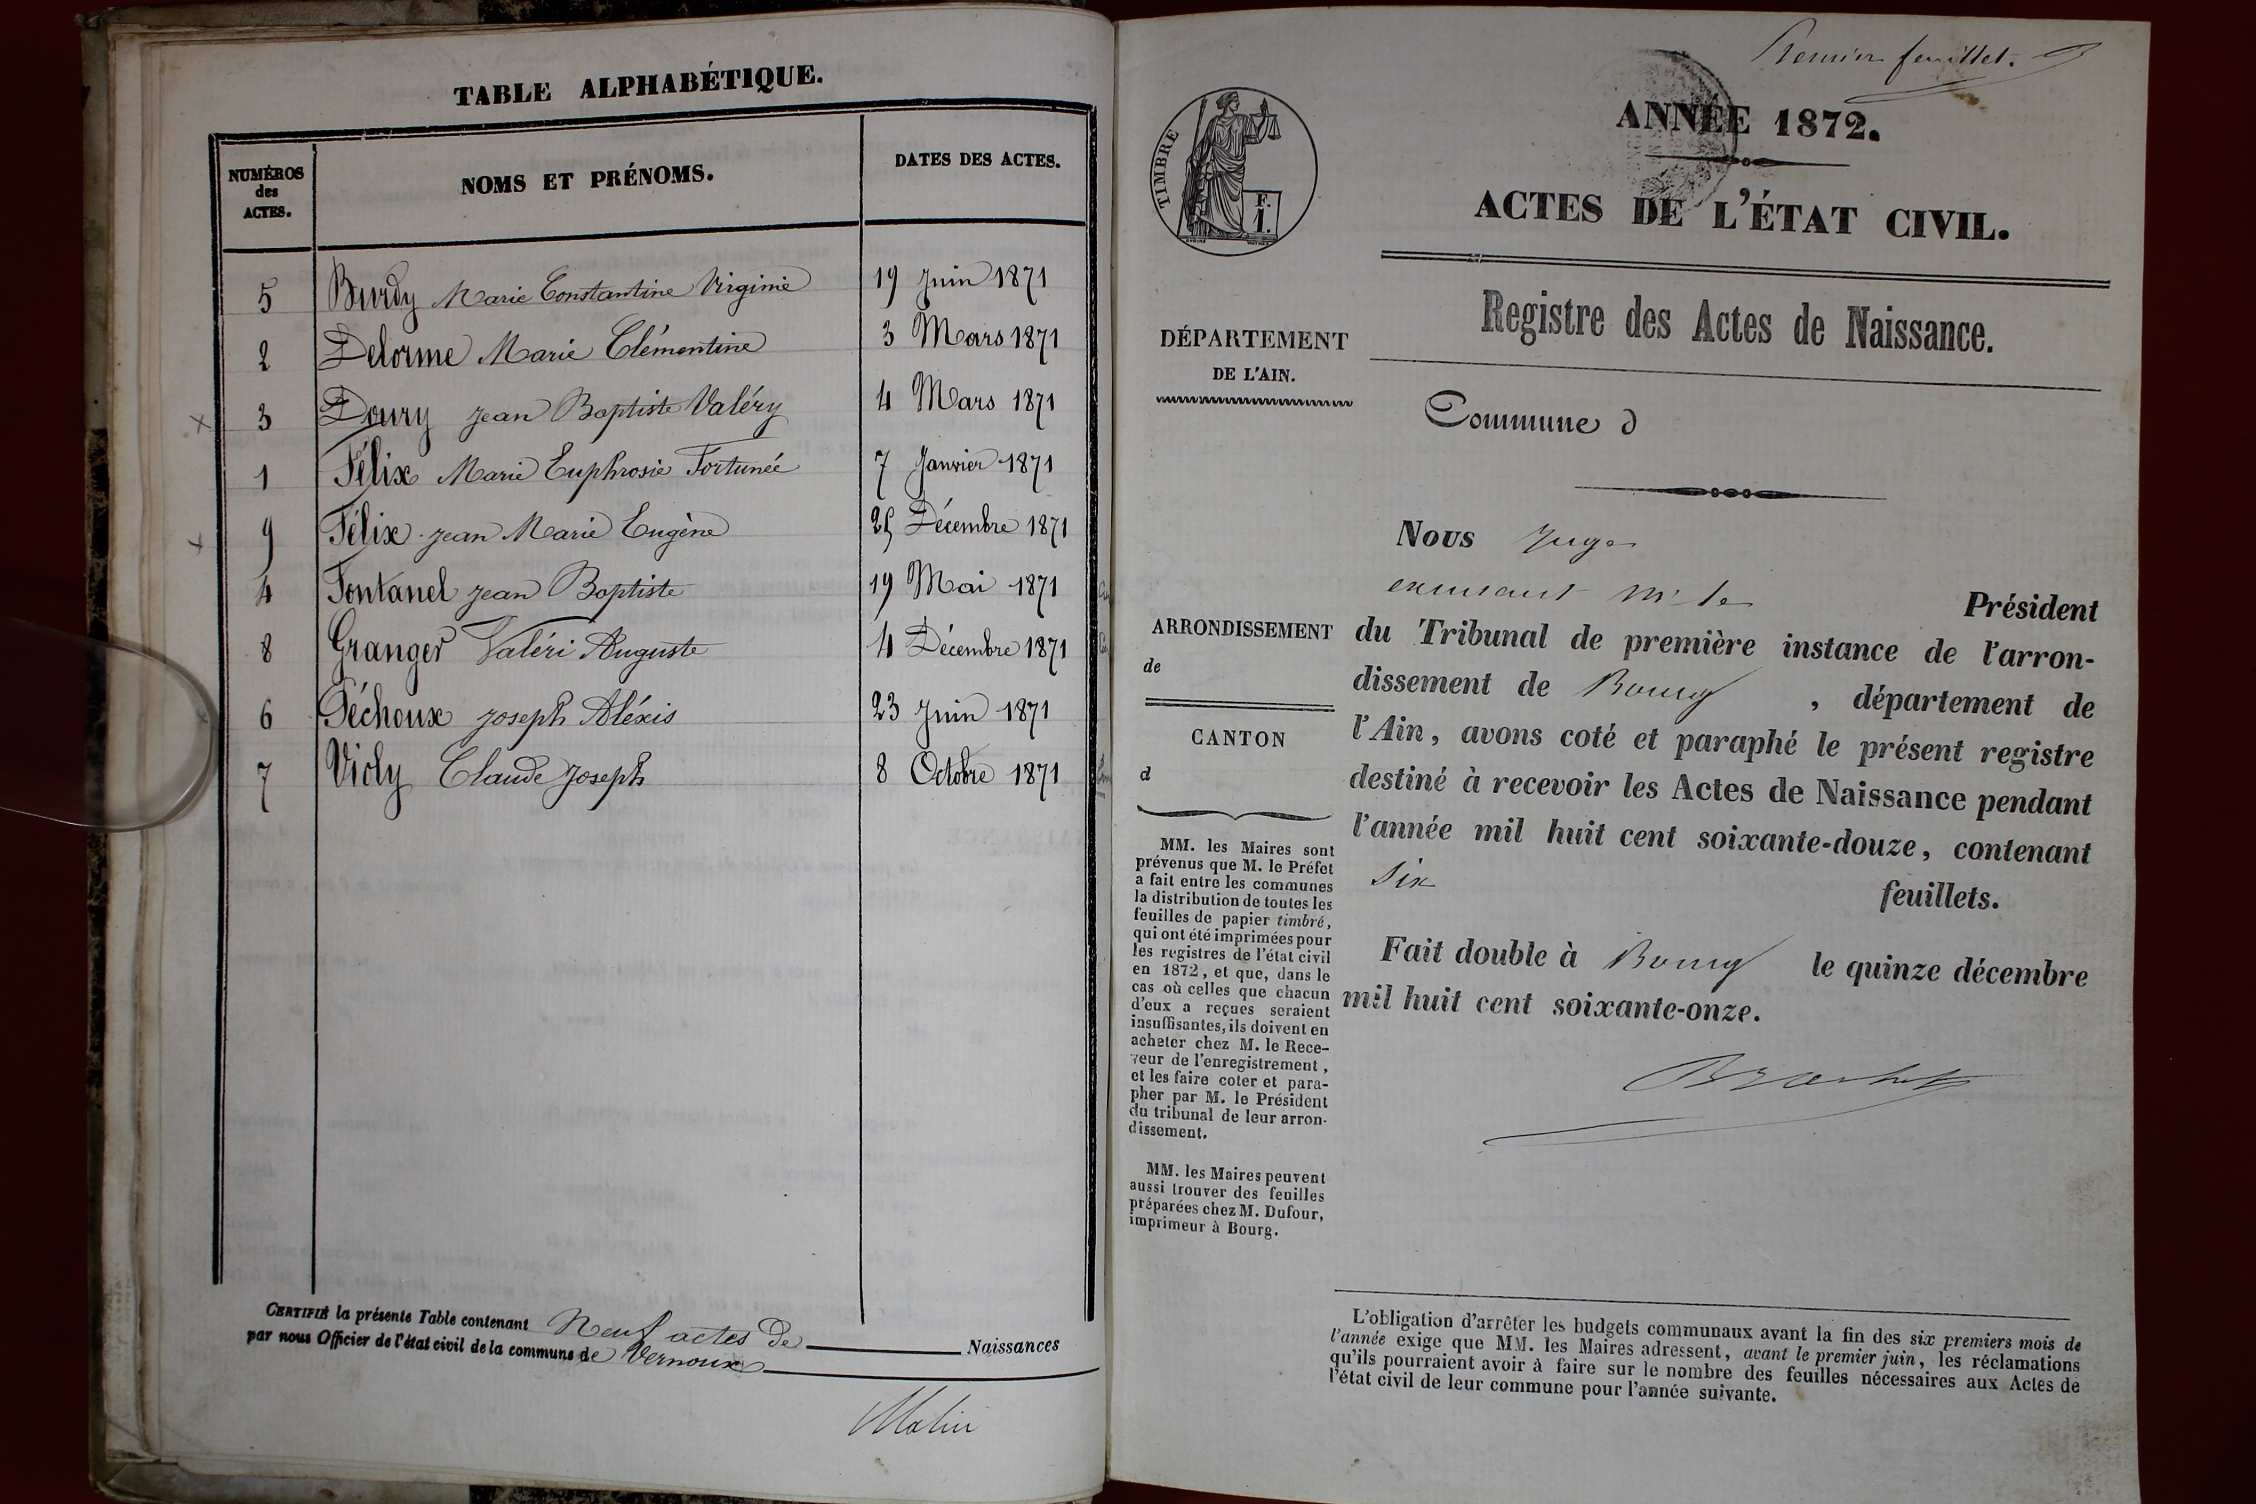 TABLE ALPHABÉTIQUE.
NUMÉROS des ACTES.
NOMS ET PRÉNOMS.
DATES DES ACTES.
5 Burdy Marie Constantine Virginie 19 Juin 1871
2 Delorme Marie Clémentine 3 Mars 1871
3 Doury Jean Baptiste Valéry 4 Mars 1871
1 Félix Marie Euphrosie Fortunée 7 Janvier 1871
9 Félix Jean Marie Eugène 25 Décembre 1871
4 Fontanel Jean Baptiste 19 Mai 1871
8 Granger Valéri Auguste 4 Décembre 1871
6 Péchoux Joseph Aléxis 23 Juin 1871
7 Violy Claude Joseph 8 Octobre 1871
CERTIFIÉ la présente Table contenant Neuf actes de Naissances
par nous Officier de l'état civil de la commune de Vernoux
Premier feuillet.
TIMBRE
F.
1.
ANNÉE 1872.
ACTES DE L'ÉTAT CIVIL.
Registre des Actes de Naissance.
DÉPARTEMENT
DE L'AIN.
ARRONDISSEMENT
de
CANTON
d
MM. les Maires sont
prévenus que M. le Préfet
a fait entre les communes
la distribution de toutes les
feuilles de papier timbré,
qui ont été imprimées pour
les registres de l'état civil
en 1872, et que, dans le
cas où celles que chacun
d'eux a reçues seraient
insuffisantes, ils doivent en
acheter chez M. le Rece-
veur de l'enregistrement,
et les faire coter et para-
pher par M. le Président
du tribunal de leur arron-
dissement.
MM. les Maires peuvent
aussi trouver des feuilles
préparées chez M. Dufour,
imprimeur à Bourg.
Commune d
Nous Juge
Président
du Tribunal de première instance de l'arron-
dissement de Bourg, département de
l'Ain, avons coté et paraphé le présent registre
destiné à recevoir les Actes de Naissance pendant
l'année mil huit cent soixante-douze, contenant
Six feuillets.
Fait double à Bourg le quinze décembre
mil huit cent soixante-onze.
L'obligation d'arrêter les budgets communaux avant la fin des six premiers mois de
l'année exige que MM. les Maires adressent, avant le premier juin, les réclamations
qu'ils pourraient avoir à faire sur le nombre des feuilles nécessaires aux Actes de
l'état civil de leur commune pour l'année suivante.